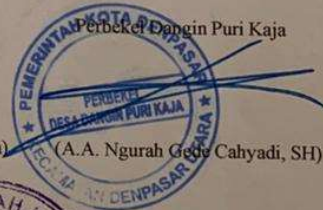 Perbekel Dangin Puri Kaja
PEMERINTAH KOTA DENPASAR
PERBEKEL
DESA DANGIN PURI KAJA
KECAMATAN DENPASAR UTARA
(A.A. Ngurah Gede Cahyadi, SH)